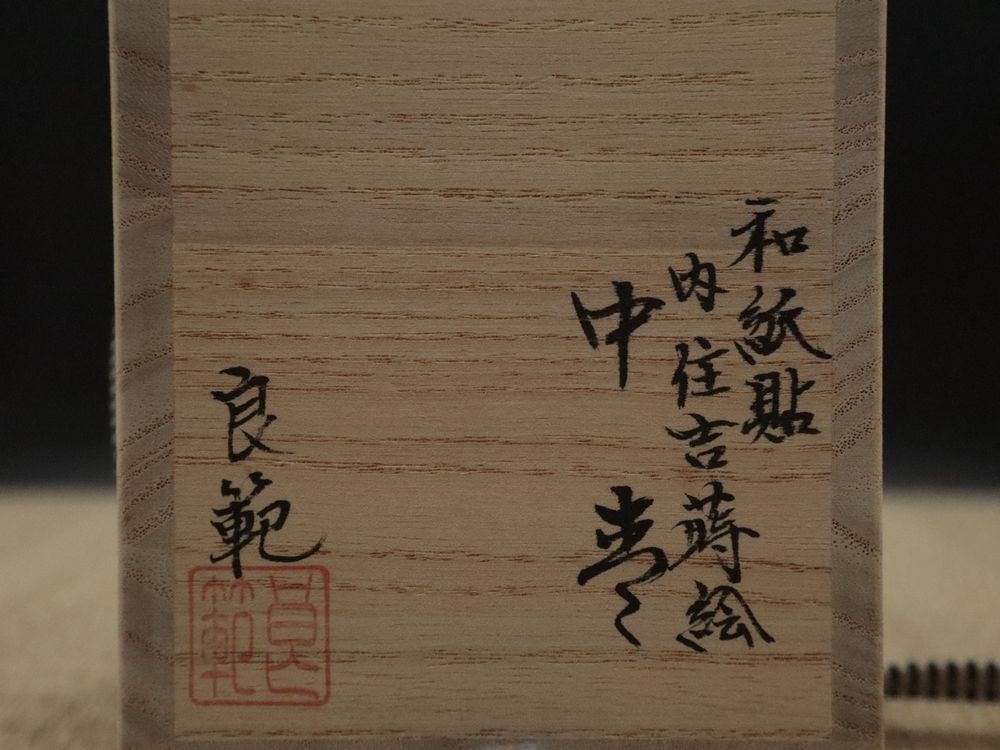 和紙貼
内住吉蒔絵
中棗
良範
良範